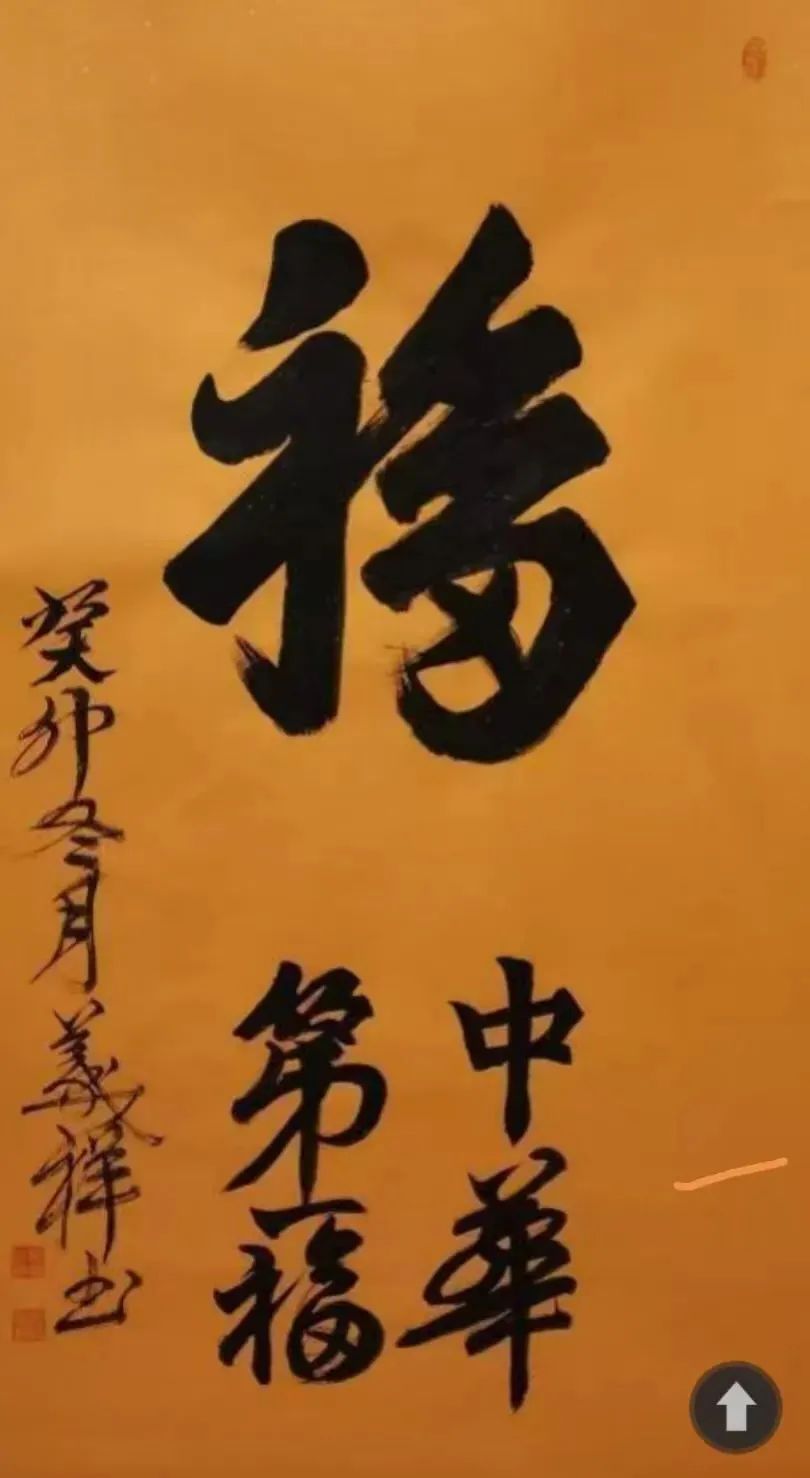 福
中華
第一福
癸卯冬月義祥书